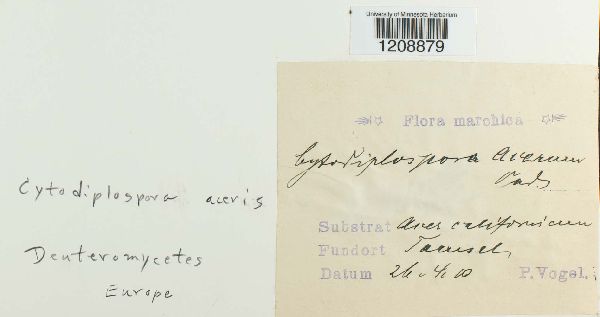 University of Minnesota Herbarium
1208879
Flora marchica
Cytodiplospora Acerum
Oud.
Substrat Acer californicum
Fundort Tamsel,
Datum 26.4.00 P. Vogel.
Cytodiplospora aceris
Deuteromycetes
Europe